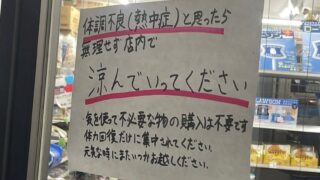 体調不良(熱中症)と思ったら
無理せず店内で
涼んでいってください
気を使って不必要な物の購入は不要です
体力回復だけに集中されてください。
元気な時にまたいつかお越しください。
LAWSON